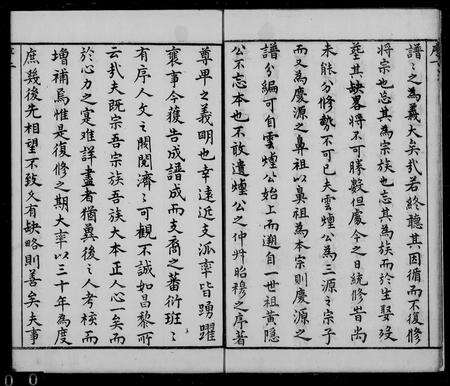 譜之之為義大矣哉若終聽其因循而不復修
將宗也忘其為宗族也忘其為族而於生娶歿
塟其缺畧將不可勝數但處今之日統修旹尚
未能分修勢不可已夫雲煙公為三源之宗子
而又為慶源之鼻祖以鼻祖為本宗則慶源之
譜分編可自雲煙公始上而遡自一世祖黄隱
公不忘本也不敢遺煙公之仲弁昭穆之序著
尊卑之義明也幸遠近支派率皆踴躍
襄事今獲告成譜成而支裔之蕃衍班之
有序人文之閥閱濟之可觀不誠如昌黎所
云哉夫既宗吾宗族吾族大本正人心一矣而
於心力之寔难詳盡者猶冀後之人考核而
增補焉惟是復修之期大率以三十年為度
庶幾後先相望不致久有缺略則善矣夫事
0 0